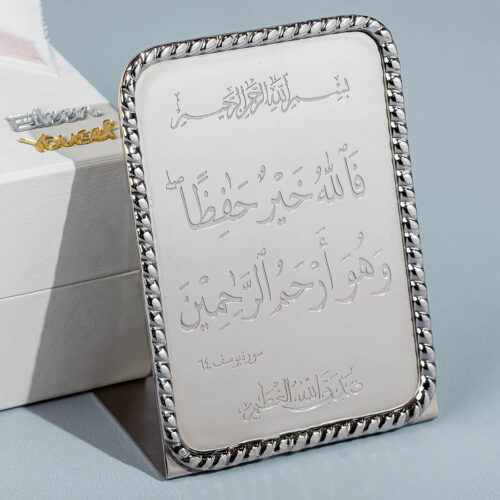 بسم الله الرحمن الرحيم
فَٱللَّهُ خَيْرٌ حَٰفِظًا ۖ
وَهُوَ أَرْحَمُ ٱلرَّٰحِمِينَ
سورة يوسف ٦٤
صدق الله العظيم
Yousef